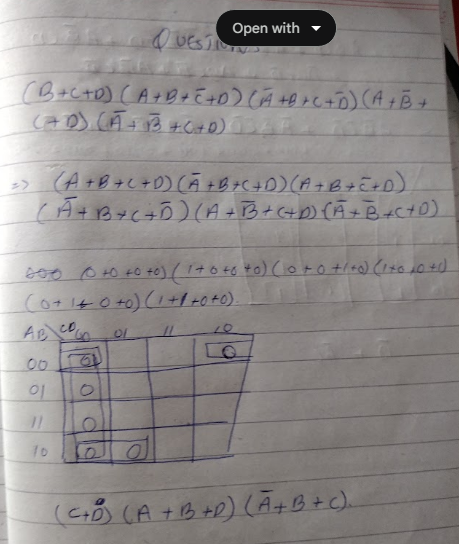 Open with
(B+C+D) (A+B+C̄+D) (Ā+B+C+D̄) (A+B̄+
C+D) (Ā+B̄+C+D)
=> (A+B+C+D) (Ā+B+C+D) (A+B+C̄+D)
(Ā+B+C+D̄) (A+B̄+C+D) (Ā+B̄+C+D)
(0+0+0+0) (1+0+0+0) (0+0+1+0) (1+0+0+1)
(0+1+0+0) (1+1+0+0)
AB\CD 00 01 11 10
00 0 0
01 0
11 0
10 0 0
(C+D) (A+B+D) (Ā+B+C).